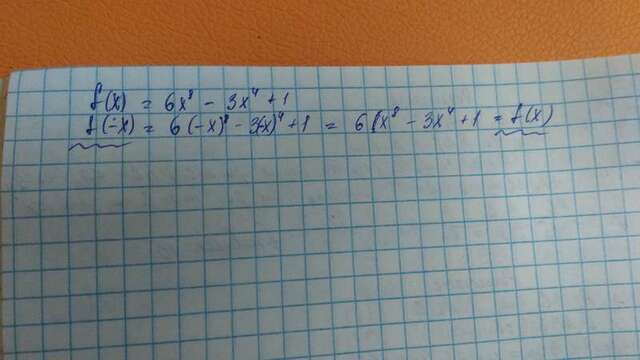 f(x) = 6x⁸ - 3x⁴ + 1
f(-x) = 6(-x)⁸ - 3(-x)⁴ + 1 = 6x⁸ - 3x⁴ + 1 = f(x)